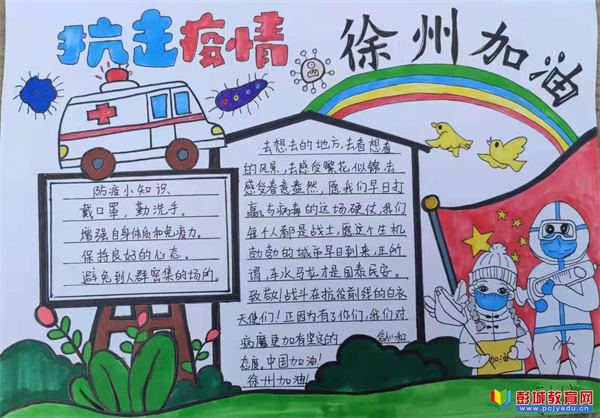 抗走疫情
徐州加油
防疫小知识、
戴口罩，勤洗手。
增强自身体质和免疫力。
保持良好的心态。
避免到人群密集的场所。
去想去的地方,去看想看
的风景,去感受繁花似锦,去
感受春意盎然,愿我们早日打
赢与病毒的这场硬仗,我们
每个人都是战士,愿这个生机
勃勃的城市早日到来,正所
谓,车水马龙才是国泰民安。
致敬!战斗在抗役前线的白衣
天使们!正因为有了你们,我们对
病魔更加有坚定的
态度。中国加油!
徐州加油!
加油
彭城教育网
www.pcjyedu.cn